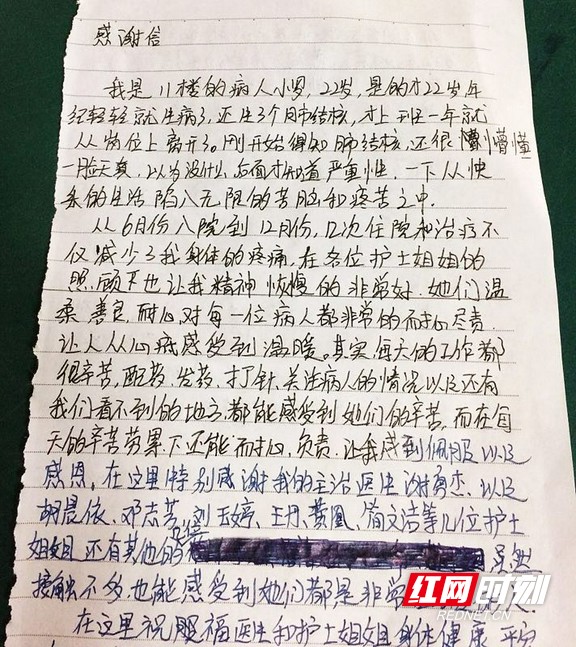 感谢信
我是11楼的病人小罗，22岁，是的才22岁年
纪轻轻就生病了，还生了个肺结核，才上班一年就
从岗位上离开了。刚开始得知肺结核，还很懵懂
一脸天真，以为没什么，后面才知道严重性，一下从快
乐的生活陷入无限的苦脑和疼苦之中。
从6月份入院到12月份，几次住院和治疗不
仅减少了我身体的疼痛，在各位护士姐姐的
照顾下也让我精神恢慢的非常好，她们温
柔善良，耐心，对每一位病人都非常的耐心尽责，
让人从心底感受到温暖。其实，每天的工作都
很辛苦，配药，发药，打针，关注病人的情况以及还有
我们看不到的地方，都能感受到她们的辛苦，而在每
天的辛苦劳累下还能耐心，负责，让我感到佩服以及
感恩，在这里特别感谢我的主治医生谢勇杰、以及
胡晨依、邓志芳、刘玉婷、王丹、黄凰、简文洁等几位护士
姐姐还有其他的 虽然
接触不多也能感受到她们都是非常
在这里祝愿福医生和护士姐姐身体健康 平安
红网时刻
REDNET.CN